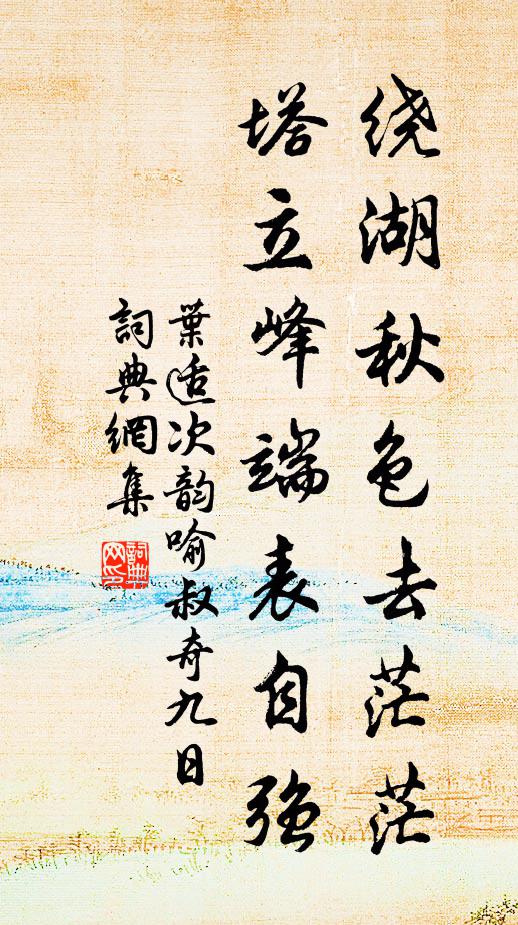 绕湖秋色去茫茫
塔立峰端表自强
葉适次韵喻叔奇九日
詞典網集
詞典网印